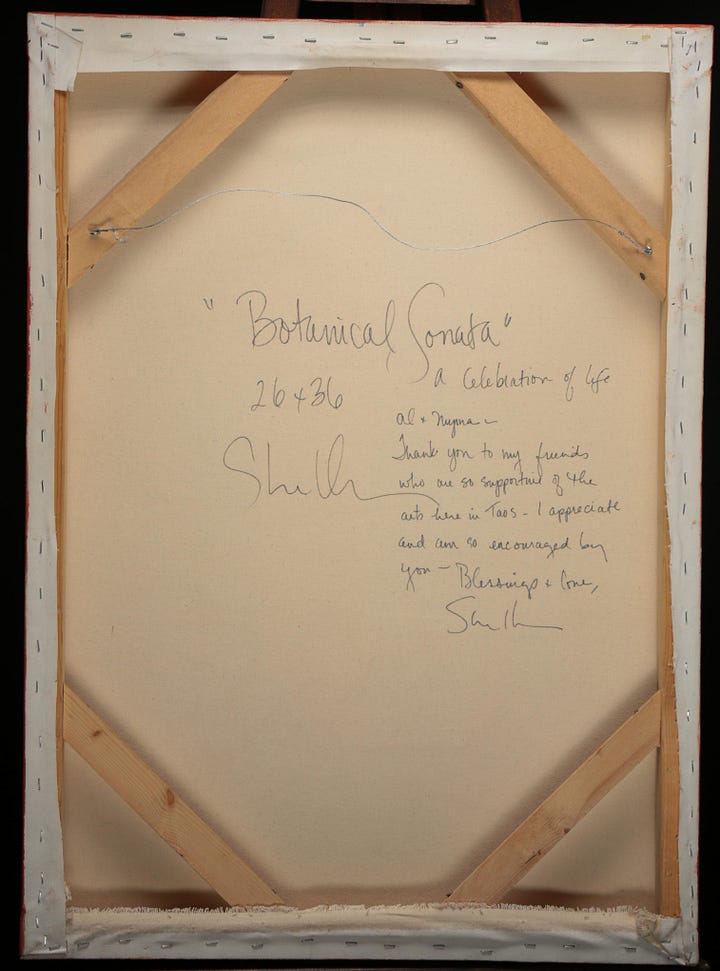 "Botanical Sonata"
A Celebration of life
26x36
Al +
Thank you to my friends
who are so supportive of the
arts here in Taos - I appreciate
and am so encouraged by
you - Blessings + Love,